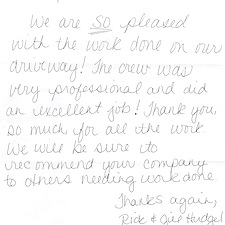 We are SO pleased
with the work done on our
driveway! The crew was
very professional and did
an excellent job! Thank you,
so much for all the work
We will be sure to
recommend your company
to others needing work done.
Thanks again,
Rick &